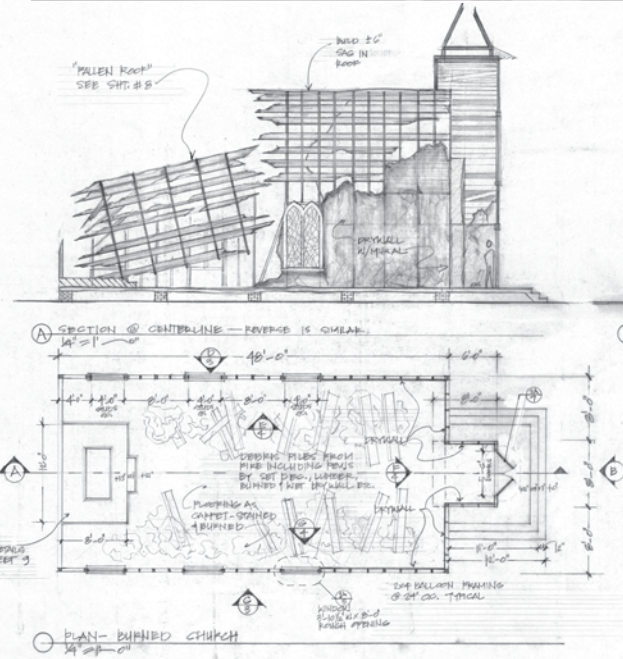 "FALLEN ROOF"
SEE SHT. # 8
BUILD ± 6"
SAG IN
ROOF
DRYWALL
W/ MURAL
A SECTION @ CENTERLINE — REVERSE IS SIMILAR.
1/4" = 1'—0"
48'-0"
6'-0"
4'-0"
8'-0"
4'-0"
8'-0"
4'-0"
8'-0"
8'-0"
DRYWALL
DEBRIS PILES FROM
FIRE INCLUDING PEWS
BY SET DEC., LUMBER,
BURNED & WET DRYWALL ER.
A
B
FLOORING AS
CARPET-STAINED
& BURNED
DRYWALL
8'-0"
8'-0"
8'-0"
8'-0"
11'-0"
12'-0"
2x4 BALLOON FRAMING
@ 24" OC. TYPICAL
WINDOW
ROUGH OPENING
PLAN - BURNED CHURCH
1/4" = 1'—0"